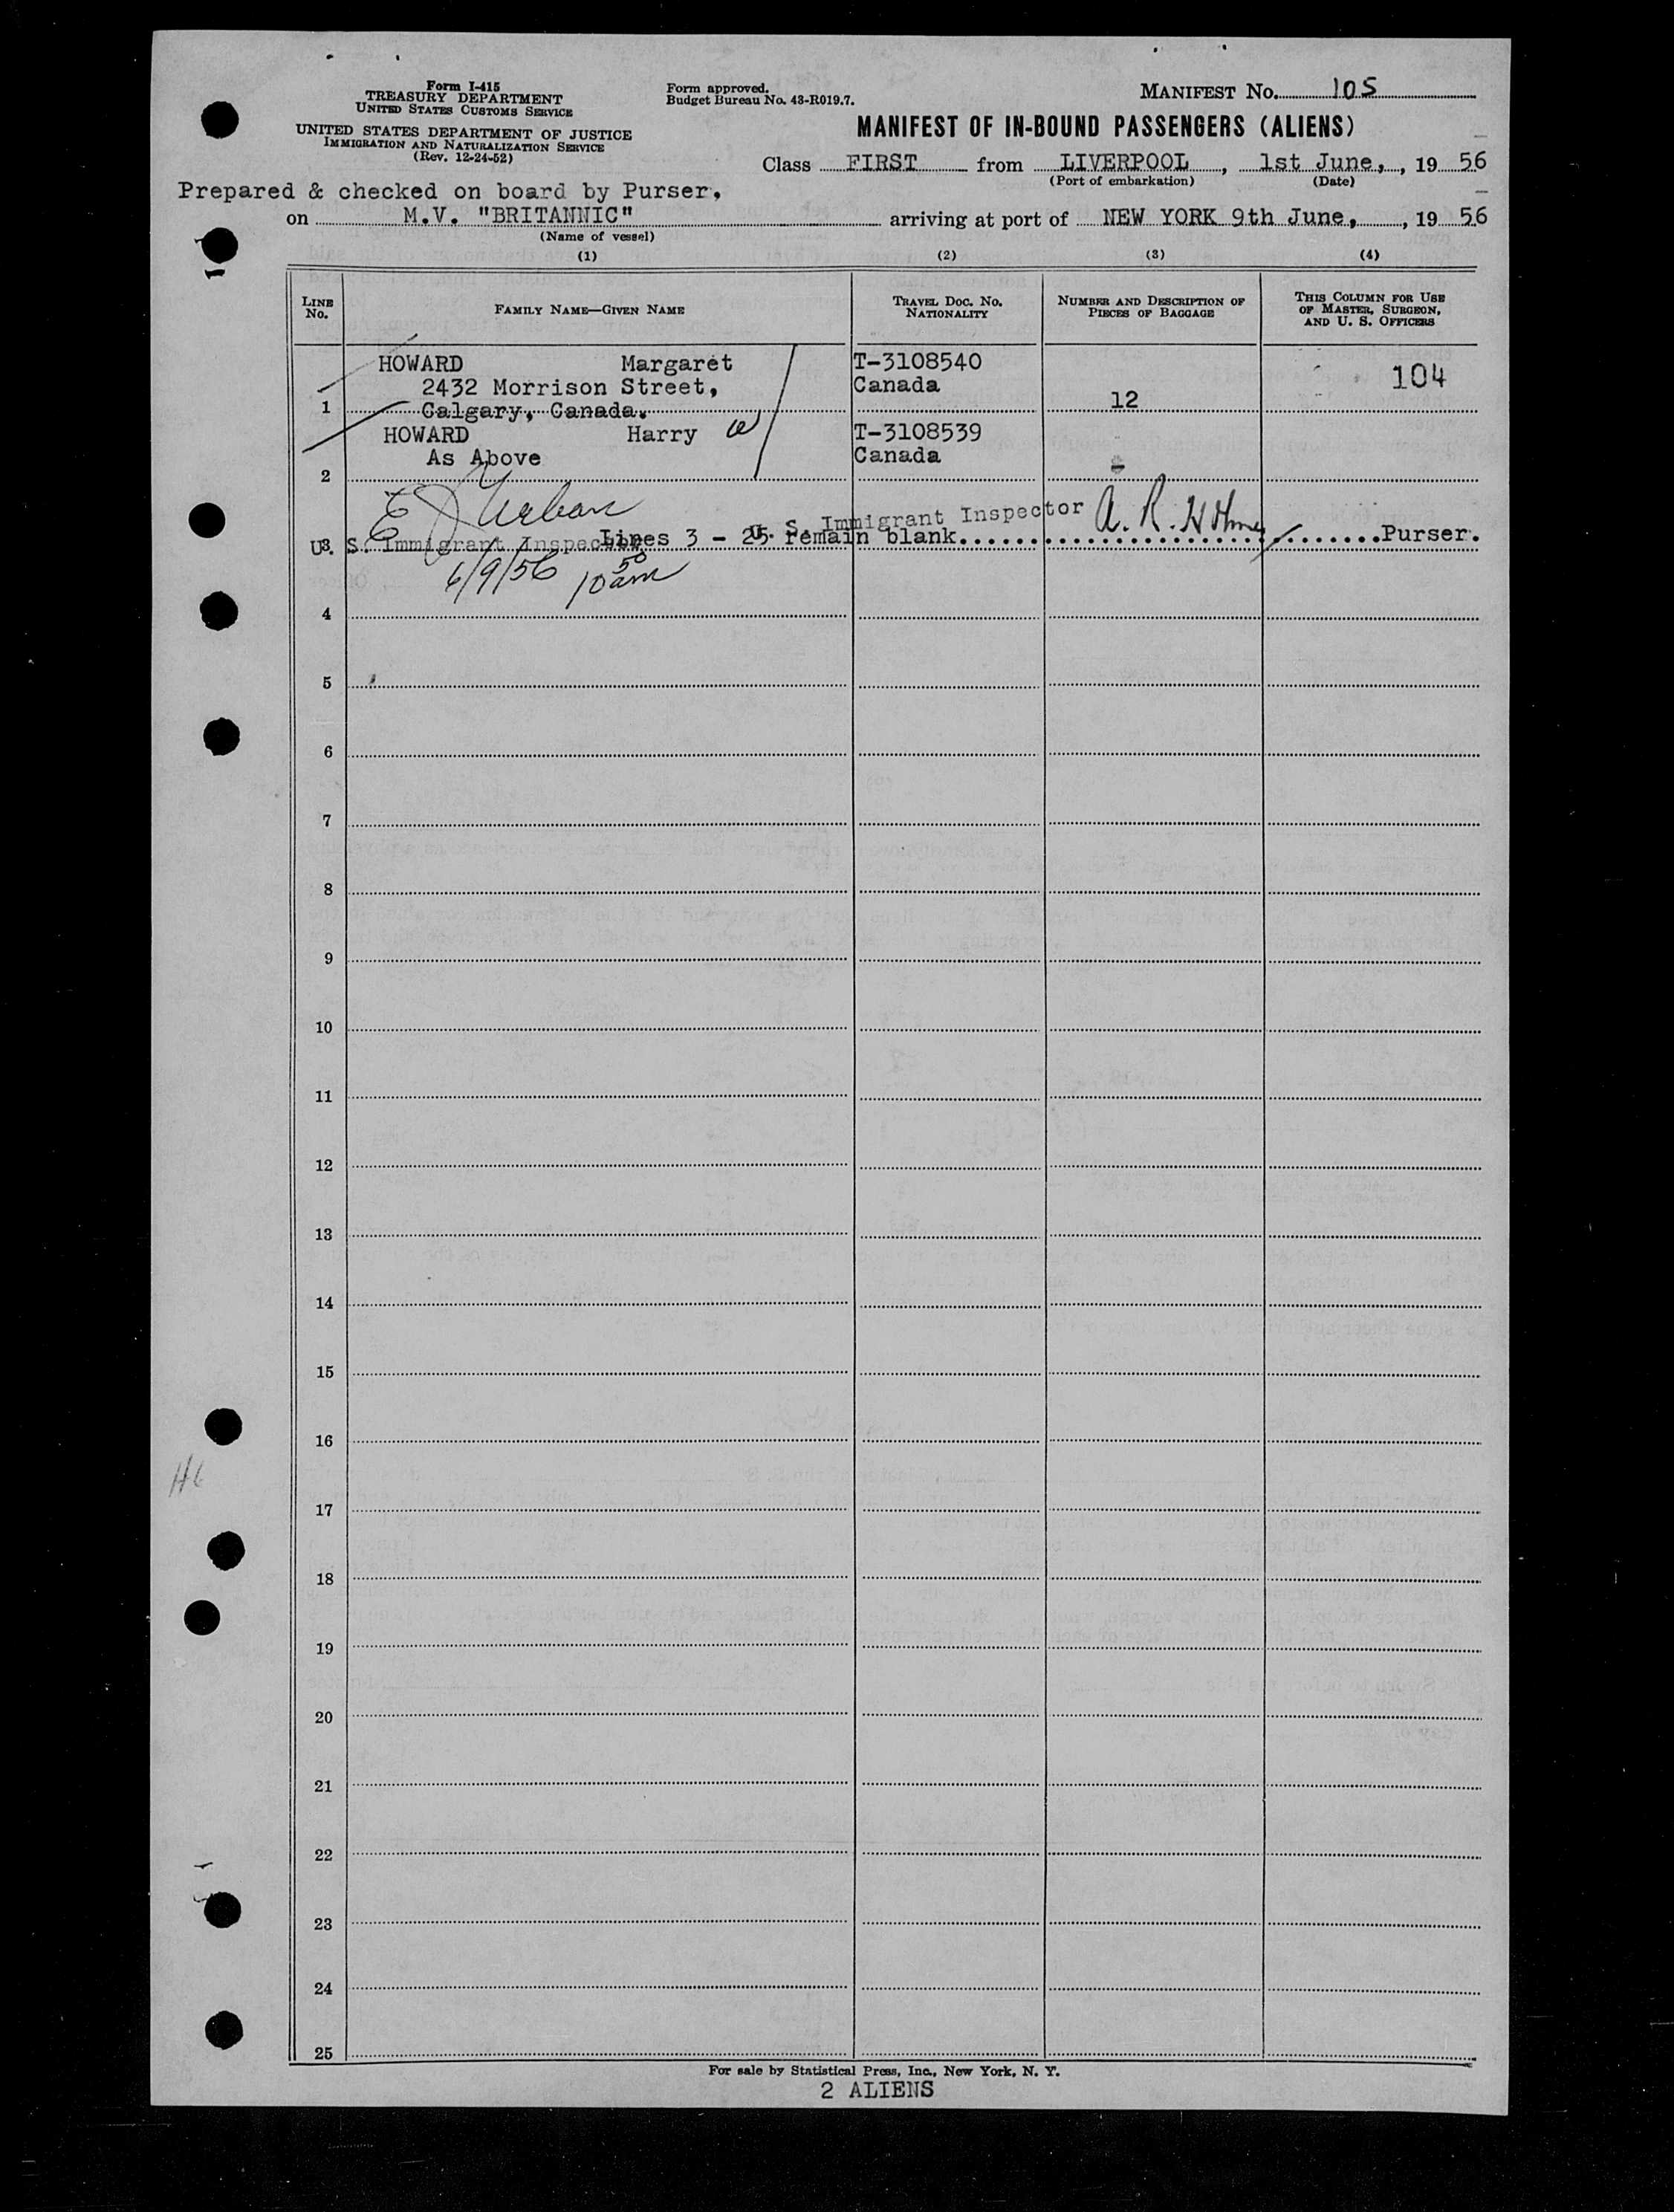 Form I-415
TREASURY DEPARTMENT
UNITED STATES CUSTOMS SERVICE
UNITED STATES DEPARTMENT OF JUSTICE
IMMIGRATION AND NATURALIZATION SERVICE
(Rev. 12-24-52)
Form approved.
Budget Bureau No. 43-R019.7.
MANIFEST No. 105
MANIFEST OF IN-BOUND PASSENGERS (ALIENS)
Class FIRST from LIVERPOOL, 1st June, , 19 56
(Port of embarkation) (Date)
Prepared & checked on board by Purser.
on M.V. "BRITANNIC" arriving at port of NEW YORK 9th June, , 19 56
(Name of vessel)
(1) (2) (3) (4)
LINE No. FAMILY NAME—GIVEN NAME TRAVEL DOC. NO. NATIONALITY NUMBER AND DESCRIPTION OF PIECES OF BAGGAGE THIS COLUMN FOR USE OF MASTER, SURGEON, AND U. S. OFFICERS
HOWARD Margaret T-3108540 104
2432 Morrison Street, Canada
1 Calgary, Canada. 12
HOWARD Harry T-3108539
As Above Canada
2 -
E J Urban
U. S. Immigrant Inspector A. R. Holmes
3 U. S. Immigrant Inspector Lines 3 - 25 remain blank. Purser.
6/9/56 10 50 am
4
5
6
7
8
9
10
11
12
13
14
15
16
17
18
19
20
21
22
23
24
25
For sale by Statistical Press, Inc., New York, N. Y.
2 ALIENS